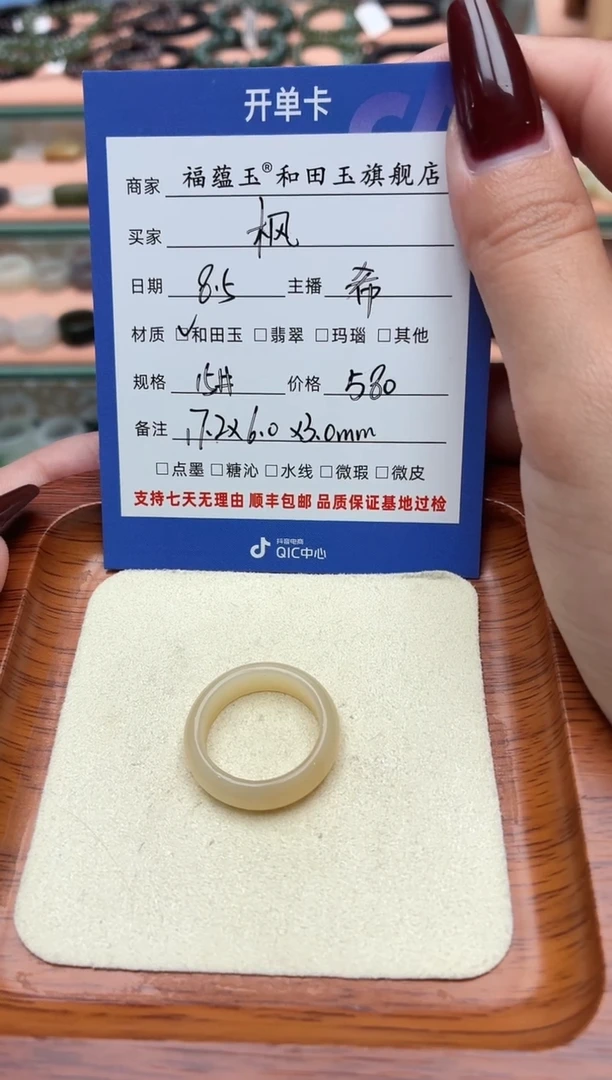 开单卡
商家 福蕴玉®和田玉旗舰店
买家 枫
日期 8.5 主播 希
材质 ☑和田玉 □翡翠 □玛瑙 □其他
规格 15# 价格 580
备注 17.2×6.0×3.0mm
□点墨 □糖沁 □水线 □微瑕 □微皮
支持七天无理由 顺丰包邮 品质保证基地过检
抖音电商
QIC中心